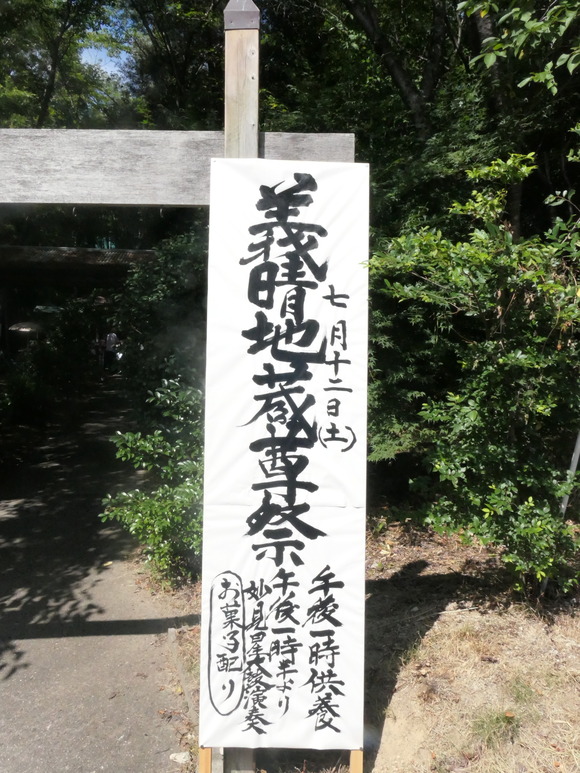 七月十二日(土)
義晴地蔵尊祭
午後一時供養
午後一時半より
妙見星太鼓演奏
お菓子配り